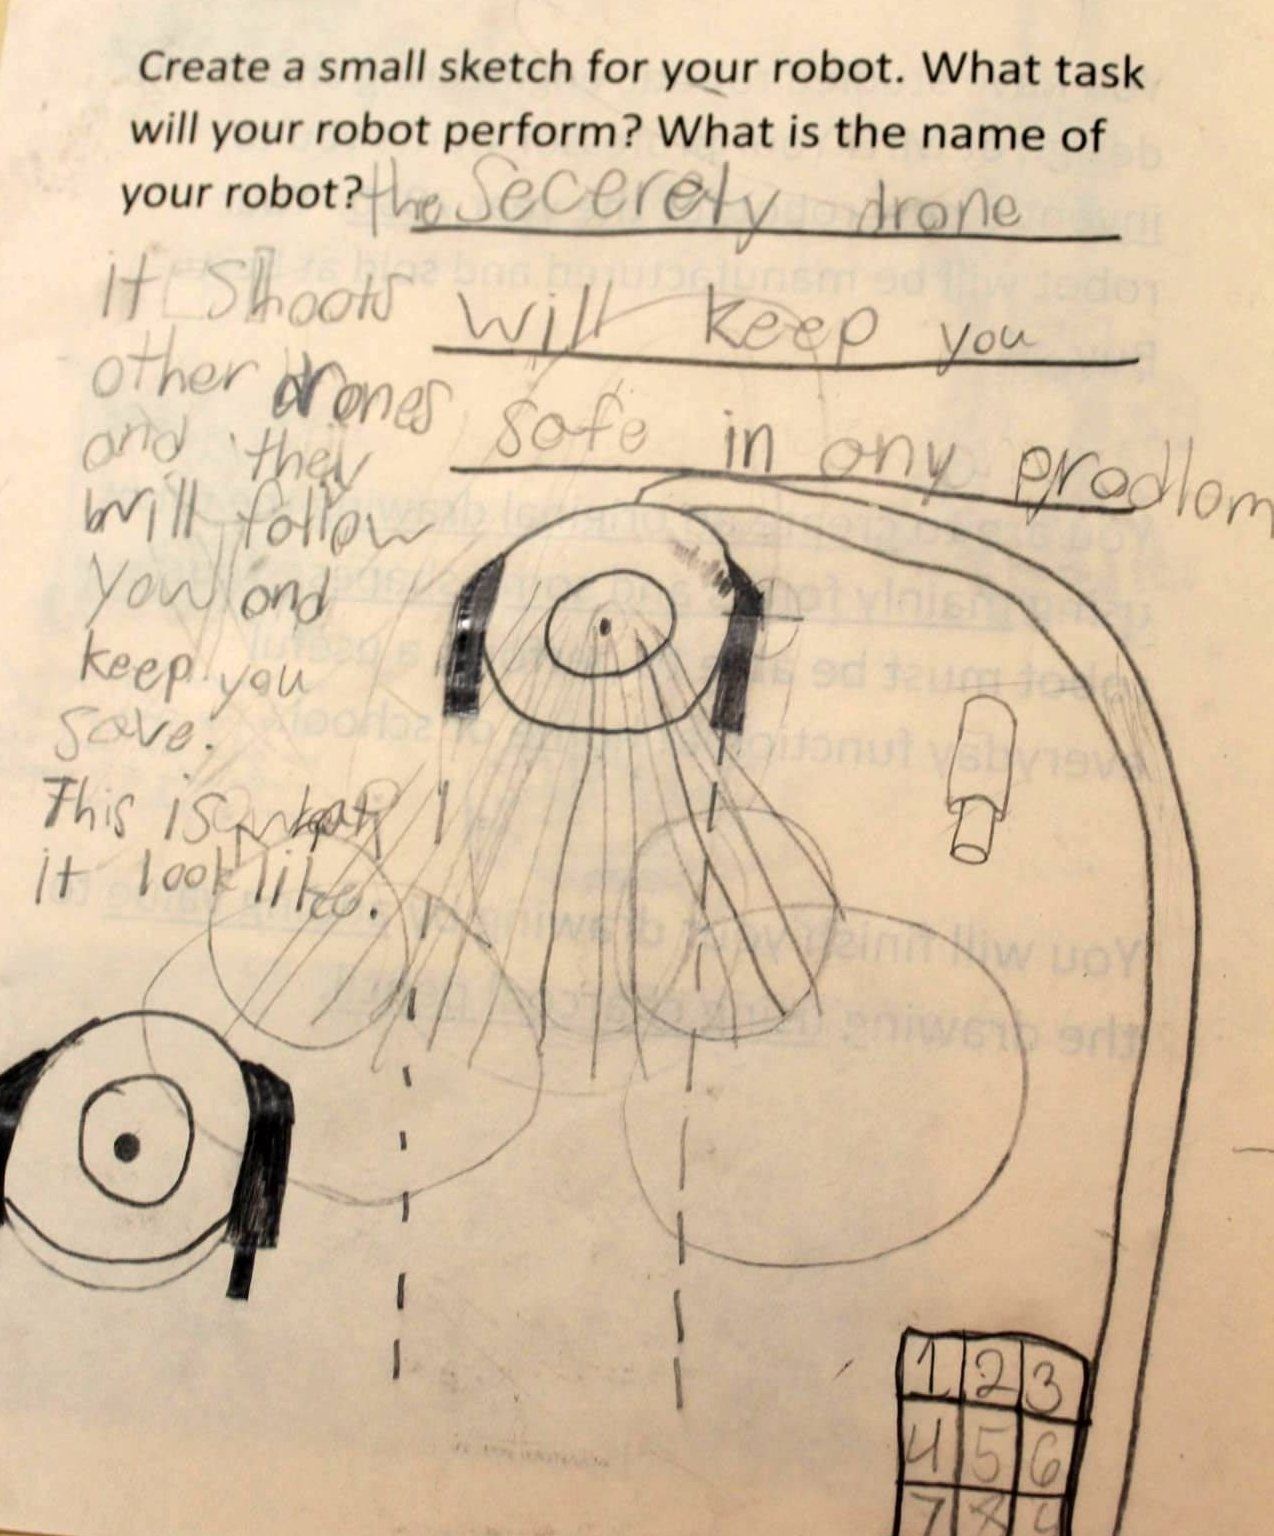 Create a small sketch for your robot. What task
will your robot perform? What is the name of
your robot? the Secerety drone
will keep you
safe in any prodlom
it Shoots
other drones
and they
will follow
you and
keep you
save.
This is what
it look like.
1 2 3
4 5 6
7 8 9